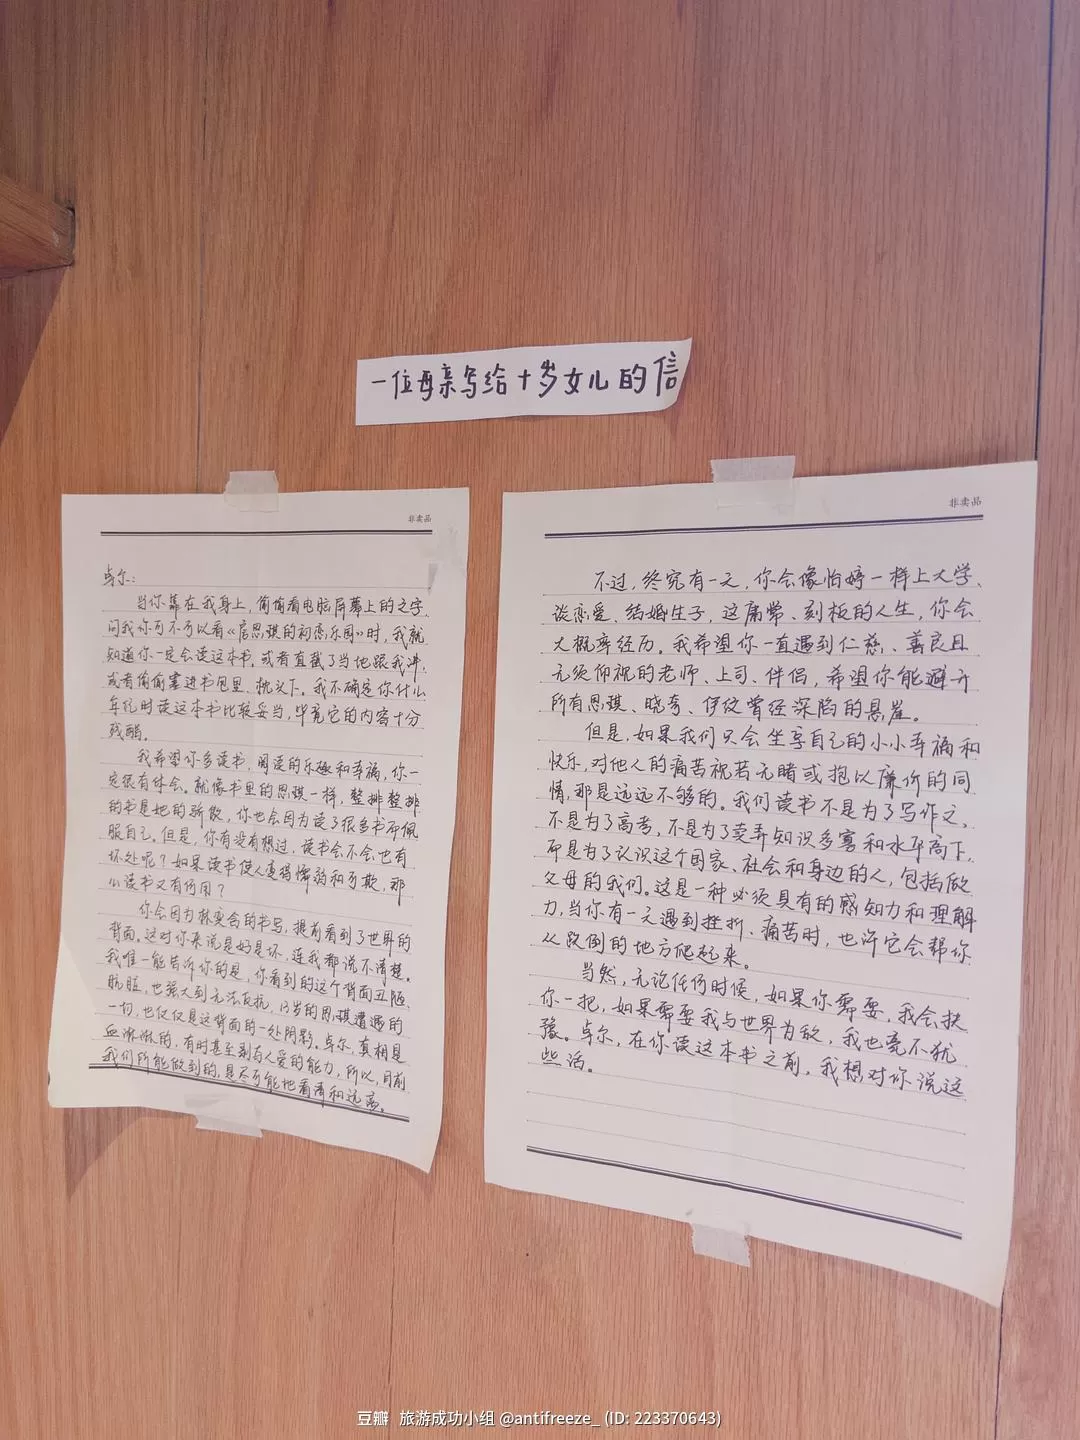 一位母亲写给十岁女儿的信
非卖品
卓尔：
当你靠在我身上，偷偷看电脑屏幕上的文字，
问我你可不可以看《房思琪的初恋乐园》时，我就
知道你一定会读这本书，或者直截了当地跟我讲，
或者偷偷塞进书包里、枕头下。我不确定你什么
年纪时读这本书比较妥当，毕竟它的内容十分
残酷。
我希望你多读书，阅读的乐趣和幸福，你一
定很有体会。就像书里的思琪一样，整排整排
的书是她的骄傲，你也会因为读了很多书而佩
服自己。但是，你有没有想过，读书会不会也有
坏处呢？如果读书使人变得懦弱和可欺，那
么读书又有何用？
你会因为林奕含的书写，提前看到了世界的
背面。这对你来说是好是坏，连我都说不清楚。
我唯一能告诉你的是，你看到的这个背面丑陋、
肮脏，也强大到无法反抗，13岁的思琪遭遇的
一切，也仅仅是这背面的一处阴影。卓尔，真相是
血淋淋的，有时甚至剥夺人爱的能力，所以，目前
我们所能做到的，是尽可能地看清和远离。
非卖品
不过，终究有一天，你会像怡婷一样上大学、
谈恋爱、结婚生子，这庸常、刻板的人生，你会
大概率经历。我希望你一直遇到仁慈、善良且
无须仰视的老师、上司、伴侣，希望你能避开
所有思琪、晓奇、伊纹曾经深陷的悬崖。
但是，如果我们只会坐享自己的小小幸福和
快乐，对他人的痛苦视若无睹或抱以廉价的同
情，那是远远不够的。我们读书不是为了写作文，
不是为了高考，不是为了卖弄知识多寡和水平高下，
而是为了认识这个国家、社会和身边的人，包括做
父母的我们。这是一种必须具有的感知力和理解
力，当你有一天遇到挫折、痛苦时，也许它会帮你
从跌倒的地方爬起来。
当然，无论任何时候，如果你需要，我会扶
你一把，如果需要我与世界为敌，我也毫不犹
豫。卓尔，在你读这本书之前，我想对你说这
些话。
豆瓣 旅游成功小组 @antifreeze_ (ID: 223370643)